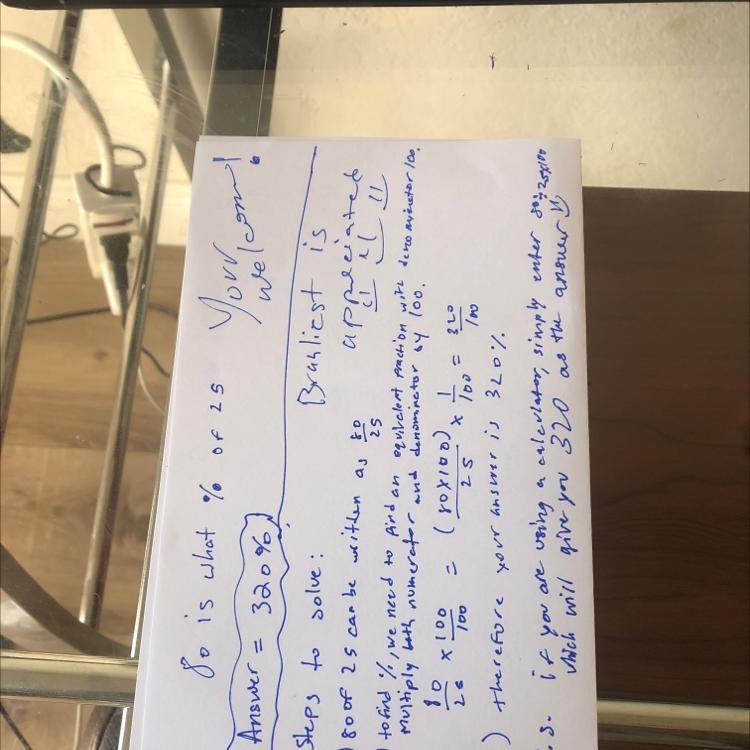 80 is what % of 25
Your
welcome!
Answer = 320%
Steps to solve:
Brainliest is
appreciated
80 of 25 can be written as 80/25
to find %, we need to find an equivalent fraction with denominator 100.
Multiply both numerator and denominator by 100.
80/25 × 100/100 = (80×100)/25 × 1/100 = 320/100
) therefore your answer is 320%
.s. if you are using a calculator, simply enter 80÷25×100
which will give you 320 as the answer :)